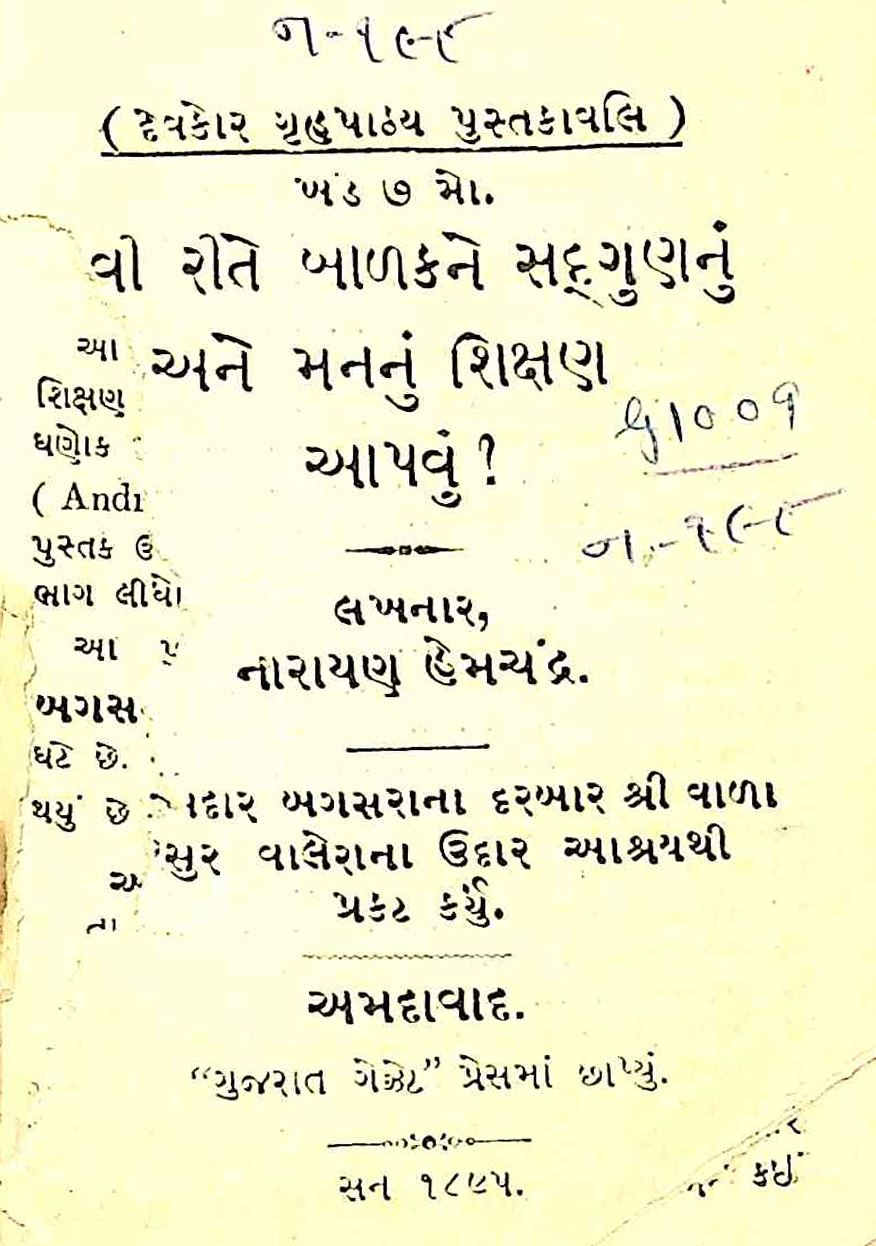 ન-૧૯૮
( દેવકોર ગૃહપાઠય પુસ્તકાવલિ )
ખંડ ૭ મો.
વી રીતે બાળકને સદ્ગુણનું
અને મનનું શિક્ષણ
આપવું?
લખનાર,
નારાયણ હેમચંદ્ર.
બગસરાના દરબાર શ્રી વાળા
વાલેરાના ઉદાર આશ્રયથી
પ્રકટ કર્યું.
અમદાવાદ.
“ગુજરાત ગેઝેટ” પ્રેસમાં છાપ્યું.
સન ૧૮૯૫.
G1009
ન.-૧૯૮
આ
શિક્ષણ
ઘણોક
( Andr
પુસ્તક ઉ
ભાગ લીધો
આ
બગસ
ઘટે છે.
થયું છે
તા
કઇં